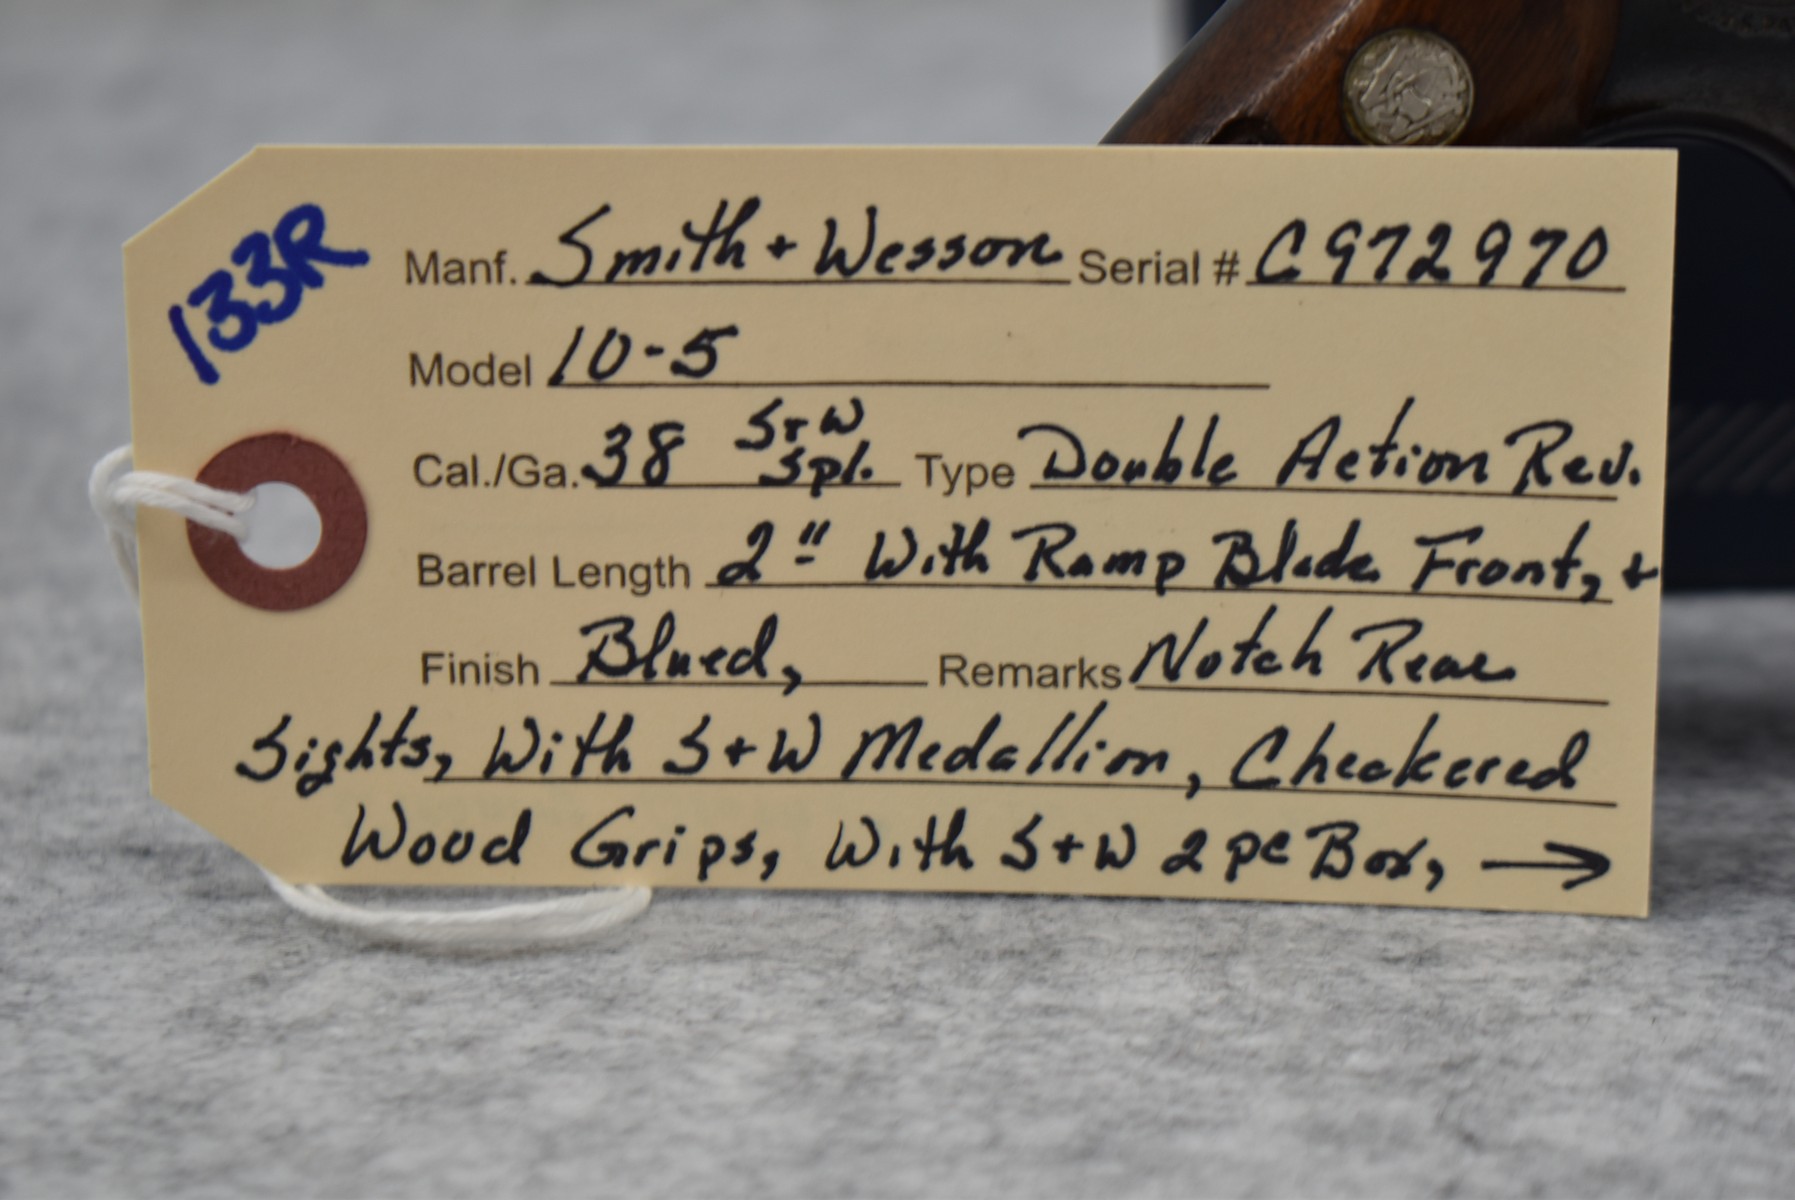 133R
Manf. Smith + Wesson Serial # C972970
Model 10-5
Cal./Ga. 38 S+W Spl. Type Double Action Rev.
Barrel Length 2" With Ramp Blade Front, +
Finish Blued, Remarks Notch Rear
Sights, With S+W Medallion, Checkered
Wood Grips, With S+W 2 pc Box, →